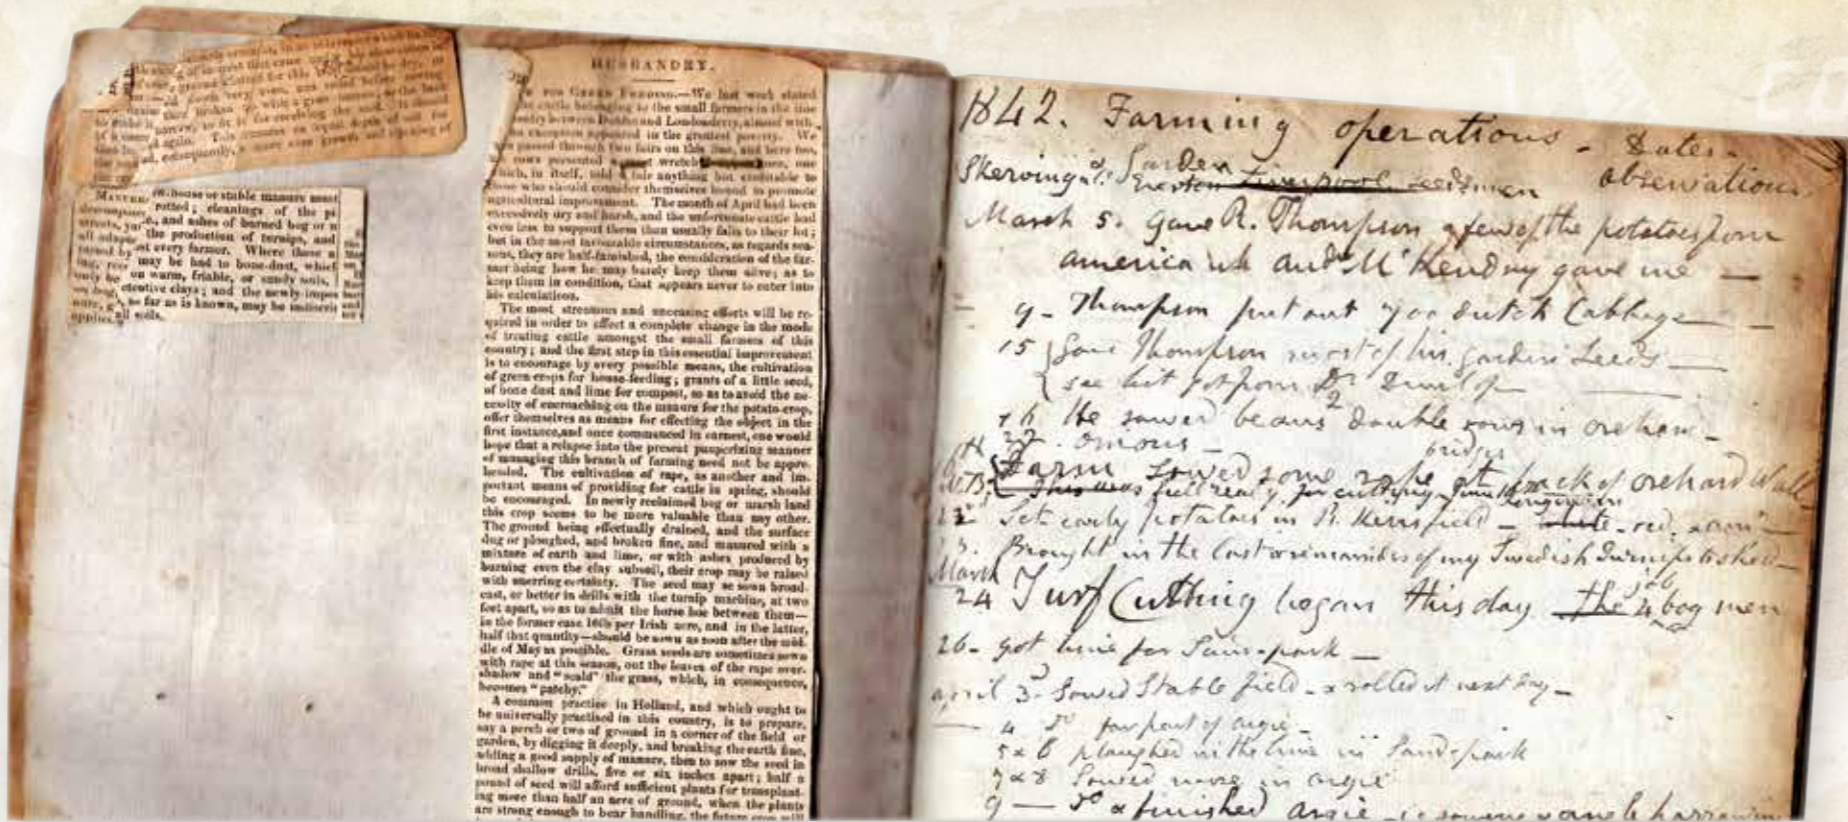 ground
be dry, or
very even, and
before sowing
then broken
with a
so fit is for receiving the seed. It should
again. This
an equal depth of soil for
consequently, a more even growth and
MANURE
house or stable manure most
rotted; cleanings of the
and ashes of burned bog or
the production of turnips, and
every farmer. Where these
may be had to bone-dust, which
on warm, friable, or sandy soils,
clays; and the newly
so far as is known, may be
all soils.
HUSBANDRY.
FOR GREEN FEEDING.—We last week stated
cattle belonging to the small farmers in the line
between Dublin and Londonderry, almost with
exception appeared in the greatest poverty. We
passed through two fairs on this line, and here too,
cows presented a most wretched appearance, one
which, in itself, told a tale anything but creditable to
those who should consider themselves bound to promote
agricultural improvement. The month of April had been
excessively dry and harsh, and the unfortunate cattle had
even less to support them than usually falls to their lot;
but in the most favourable circumstances, as regards sea-
sons, they are half-famished, the consideration of the far-
mer being how he may barely keep them alive; as to
keep them in condition, that appears never to enter into
his calculations.
The most strenuous and unceasing efforts will be re-
quired in order to effect a complete change in the mode
of treating cattle amongst the small farmers of this
country; and the first step in this essential improvement
is to encourage by every possible means, the cultivation
of green crops for house-feeding; grants of a little seed,
of bone dust and lime for compost, so as to avoid the ne-
cessity of encroaching on the manure for the potato-crop,
offer themselves as means for effecting the object in the
first instance, and once commenced in earnest, one would
hope that a relapse into the present pauperizing manner
of managing this branch of farming need not be appre-
hended. The cultivation of rape, as another and im-
portant means of providing for cattle in spring, should
be encouraged. In newly reclaimed bog or marsh land
this crop seems to be more valuable than any other.
The ground being effectually drained, and the surface
dug or ploughed, and broken fine, and manured with a
mixture of earth and lime, or with ashes produced by
burning even the clay subsoil, their crop may be raised
with unerring certainty. The seed may be sown broad-
cast, or better in drills with the turnip machine, at two
feet apart, so as to admit the horse hoe between them—
in the former case 16lb per Irish acre, and in the latter,
half that quantity—should be sown as soon after the mid-
dle of May as possible. Grass seeds are sometimes sown
with rape at this season, out the leaves of the rape over-
shadow and "scald" the grass, which, in consequence,
becomes "patchy."
A common practice in Holland, and which ought to
be universally practised in this country, is to prepare,
say a perch or two of ground in a corner of the field or
garden, by digging it deeply, and breaking the earth fine,
adding a good supply of manure, then to sow the seed in
broad shallow drills, five or six inches apart; half a
pound of seed will afford sufficient plants for transplant-
ing more than half an acre of ground, when the plants
are strong enough to bear handling, the future crop will
1842. Farming operations - Dates -
Skerving Garden Liverpool seedsmen observations
March 5. Gave R. Thompson a few of the potatoes from
america wh andw McKendry gave me —
9 - Thompson put out 400 dutch Cabbage —
15 Gave Thompson most of his garden Seeds —
see list got from Dr Dunlop
16 He sowed beans 2 double rows in orchard -
22 . onions -
Farm Sowed some rape at back of orchard Wall
This was full ready for cutting
22 Set early potatoes in R. Kerrsfield - red
Brought in the last or remainder of my Swedish Turnips to shed -
March
24 Turf Cutting began this day. The 4 bog men
26 - got lime for Sand-park —
april 3 - Sowed Stable field - & rolled it next day -
4 Do far part of argie -
5 & 6 ploughed in the lime in Sand-park
7 & 8 Sowed more in argie
9 — Do & finished argie